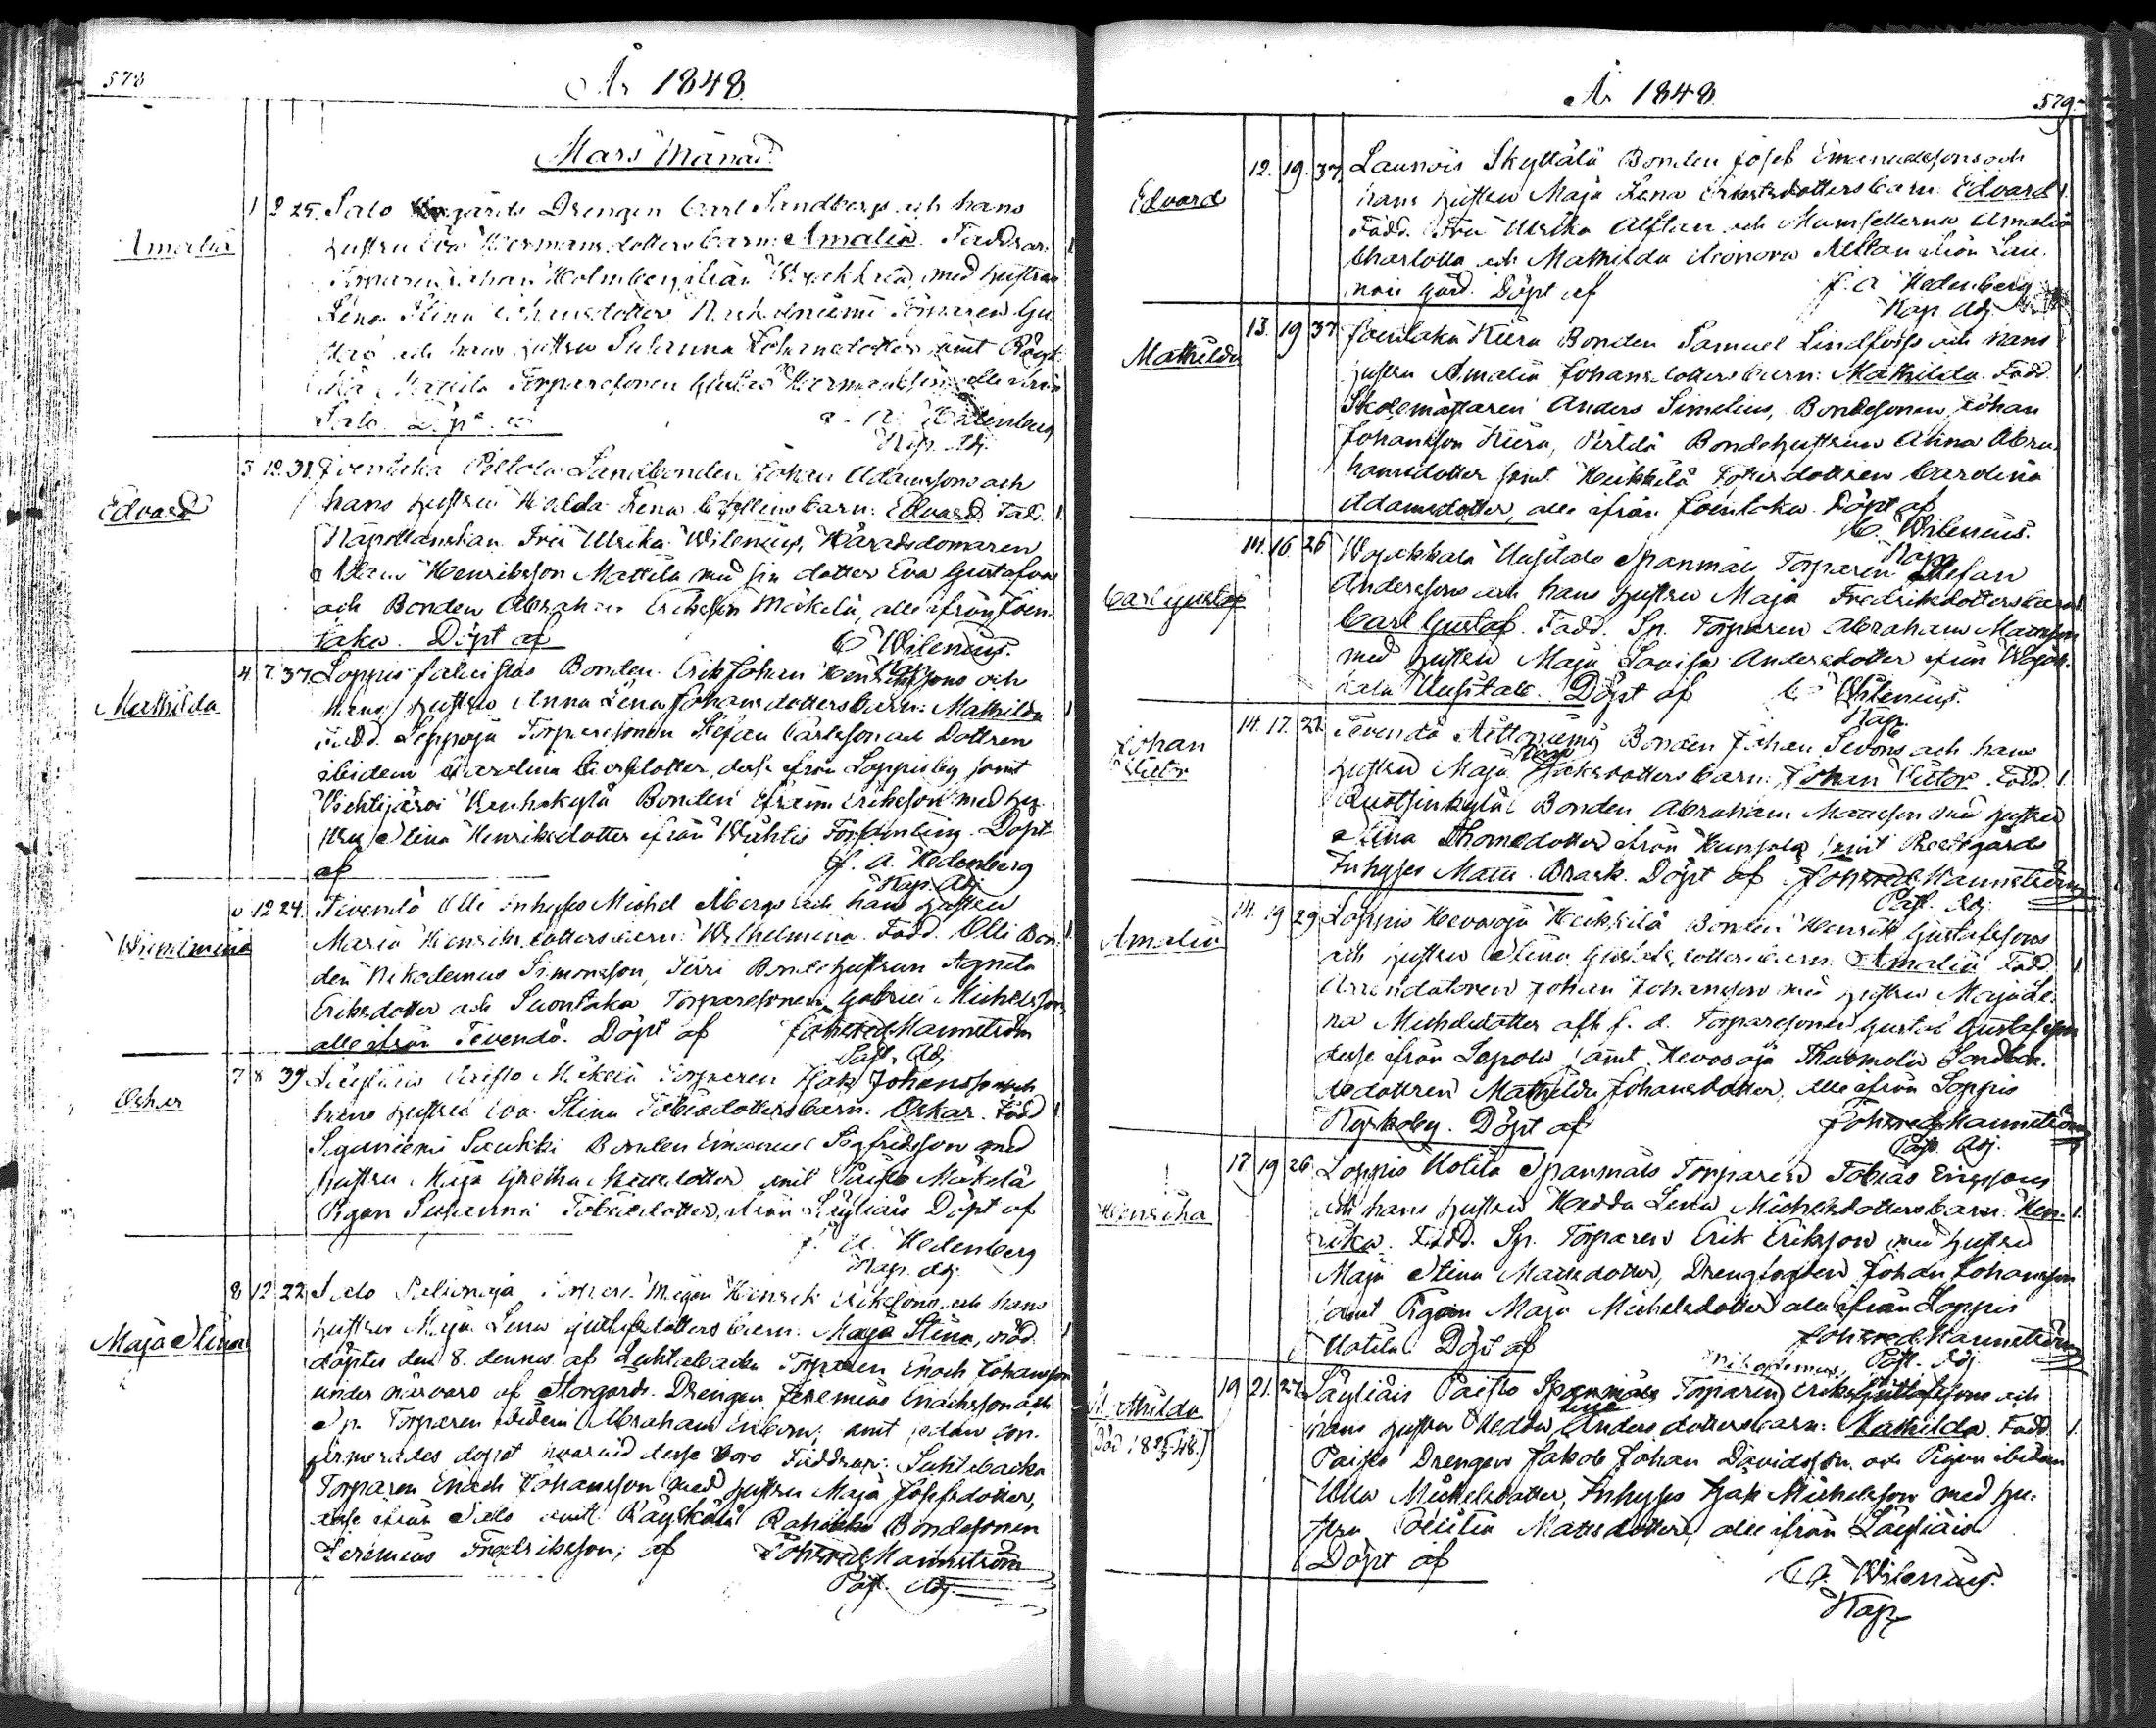 578
År 1848.
Mars Månad.
Amalia
1 2 25. Salo gårds Drengen Carl Sandbergs och hans
hustru Eva Hermansdotters barn: Amalia. Faddrar:
Torparen Johan Holmberg ifrån med hustrun
Lena Stina Torparen Gu
och hans hustru Susanna Johansdotter samt
Mattila Torparesonen Gustaf Hermansson alla ifrån
Salo. Döpt af Hedenberg
Kap. Adj.
Edvard
3 12. 31. Joentaka Peltola Landbonden Johan Adamssons och
hans hustrus Hedda Lena barn: Edvard. Fadd.
Kapellanskan Fru Ulrika Wilenius, Häradsdomaren
Henriksson Mattila med sin dotter Eva Gustafva
och Bonden Abraham Eriksson Mäkelä, alla ifrån Joen
taka. Döpt af C Wilenius.
Kap.
Mathilda
4 7. 37. Loppis Bonden Erik Johan Henrikssons och
hans hustrus Anna Lena Johansdotters barn: Mathilda
Fadd. Leppoja Torparesonen Stefan Carlsson och Dottren
ibidem Karolina Carlsdotter, desse ifrån Loppisby samt
Wihtijärvi Wanhakylä Bonden Efraim Eriksson med hu
stru Stina Henriksdotter ifrån Wichtis Församling. Döpt
af J. A. Hedenberg
Kap. Adj.
Wilhelmina
6 12 24. Tevendö Olli Inhyses Michel Åbergs och hans hustrus
Maria Henriksdotters barn: Wilhelmina. Fadd. Olli Bon
den Nikodemus Simonsson, Jirri Bondehustrun Agneta
Eriksdotter och Suontaka Torparesonen Gabriel Michelsson
alle ifrån Tevendö. Döpt af Joh: Fred: Mannström
Past. Adj.
Oskar
7 8 39 Läyliäis Paisto Mäkelä Torparen Isak Johanssons och
hans hustrus Eva Stina Tobiasdotters barn: Oskar. Fadd
Saukki Bonden Emanuel Sigfridsson med
hustru Maja Gretha Mattsdotter samt Paisto Mäkelä
Pigan Susanna Tobiasdotter, ifrån Läyliäis Döpt af
J. A. Hedenberg
Kap. Adj.
Maja Stina
8 12 22 Salo Henrik Erikssons och hans
hustrus Maja Lena Gustafsdotters barn: Maja Stina, nöd
döptes den 8. dennes af Luhtabacka Torparen Enoch Johansson
under närvaro af Storgårds Drengen Jeremias Enochsson och
Sp. Torparen ibidem Abraham Enbom; samt sedan con
firmerades dopet hvarvid desse voro Faddrar: Luhtabacka
Torparen Enoch Johansson med hustru Maja Josefsdotter,
desse ifrån Salo samt Räyskälä Rahikka Bondesonen
Jeremias Fredriksson; af Joh: Fred: Mannström
Past. Adj.
År 1848.
579
Edvard
12. 19. 37. Launois Skyttälä Bonden Josef Emanuelssons och
hans hustrus Maja Lena Ernstsdotters barn: Edvard
Fadd. Fru Ulrika Alftan och Mamsellerna Amalia
Charlotta och Mathilda Eleonora Alftan ifrån Lau
nois gård. Döpt af J. A Hedenberg
Kap. Adj.
Mathilda
13. 19 37. Joentaka Kiera Bonden Samuel Lindfors och hans
hustru Amalia Johansdotters barn: Mathilda. Fadd.
Skolemästaren Anders Simelius, Bondesonen Johan
Johansson Kiera, Pertilä Bondehustrun Abra
hamsdotter samt Heikkilä Carolina
Adamsdotter, alle ifrån Joentaka. Döpt af
C. Wilenius.
Kap.
Carl Gustaf
14. 16. 26 Wojakkala Uusitalo Spanmåls Torparen Stefan
Anderssons och hans hustrus Maja Fredriksdotters barn
Carl Gustaf. Fadd. Sp. Torparen Abraham Mattsson
med hustru Maja Lovisa Andersdotter ifrån Wojak
kala Uusitalo. Döpt af C Wilenius.
Kap.
Johan
Victor
14. 17. 22 Tevendö Bonden Johan Simons och hans
hustrus Maja Stina Isaksdotters barn: Johan Victor. Fadd.
Ruotsinkylä Bonden Abraham Mattsson med hustru
Stina Thomedotter ifrån samt Prestgårds
Inhyses Matts Brask. Döpt af Joh: Fred: Mannström
Past. Adj.
Amalia
14. 19 29. Loppis Hevosoja Heikkilä Bonden Henrik Gustafssons
och hustrus Stina dotters barn: Amalia. Fadd.
Arrendatoren Johan Johansson med hustru Maja Le
na Michelsdotter afl. f. d. Torparesonen Gustaf Gustafsson
desse ifrån Sopola samt Hevosoja Thuomola Landbon
dedottren Mathilda Johansdotter, alle ifrån Loppis
Kyrkoby. Döpt af Joh: Fred: Mannström
Past. Adj.
Henrika
17 19 26. Loppis Uotila Spanmåls Torparen Tobias Erikssons
och hans hustrus Hedda Lena Michelsdotters barn: Hen
rika. Fadd. Sp. Torparen Erik Eriksson med hustru
Maja Stina Mattsdotter, Drengogossen Johan Johansson
samt Pigan Maja Michelsdotter alle ifrån Loppis
Uotila Döpt af Joh: Fred: Mannström
Past. Adj.
Mathilda
(Död 18 48.)
19 21. 27. Läyliäis Paisto Spanmåls Torparen Erik Nikodemus Gustafssons och
hans hustru Hedda Lena Andersdotters barn: Mathilda. Fadd.
Paisto Drengen Jakob Johan Davidsson och Pigan ibidem
Ulla Michelsdotter, Inhyses Isak Michelsson med hu
stru Cecilia Mattsdotter, alle ifrån Läyliäis
Döpt af
C. Wilenius.
Kap.